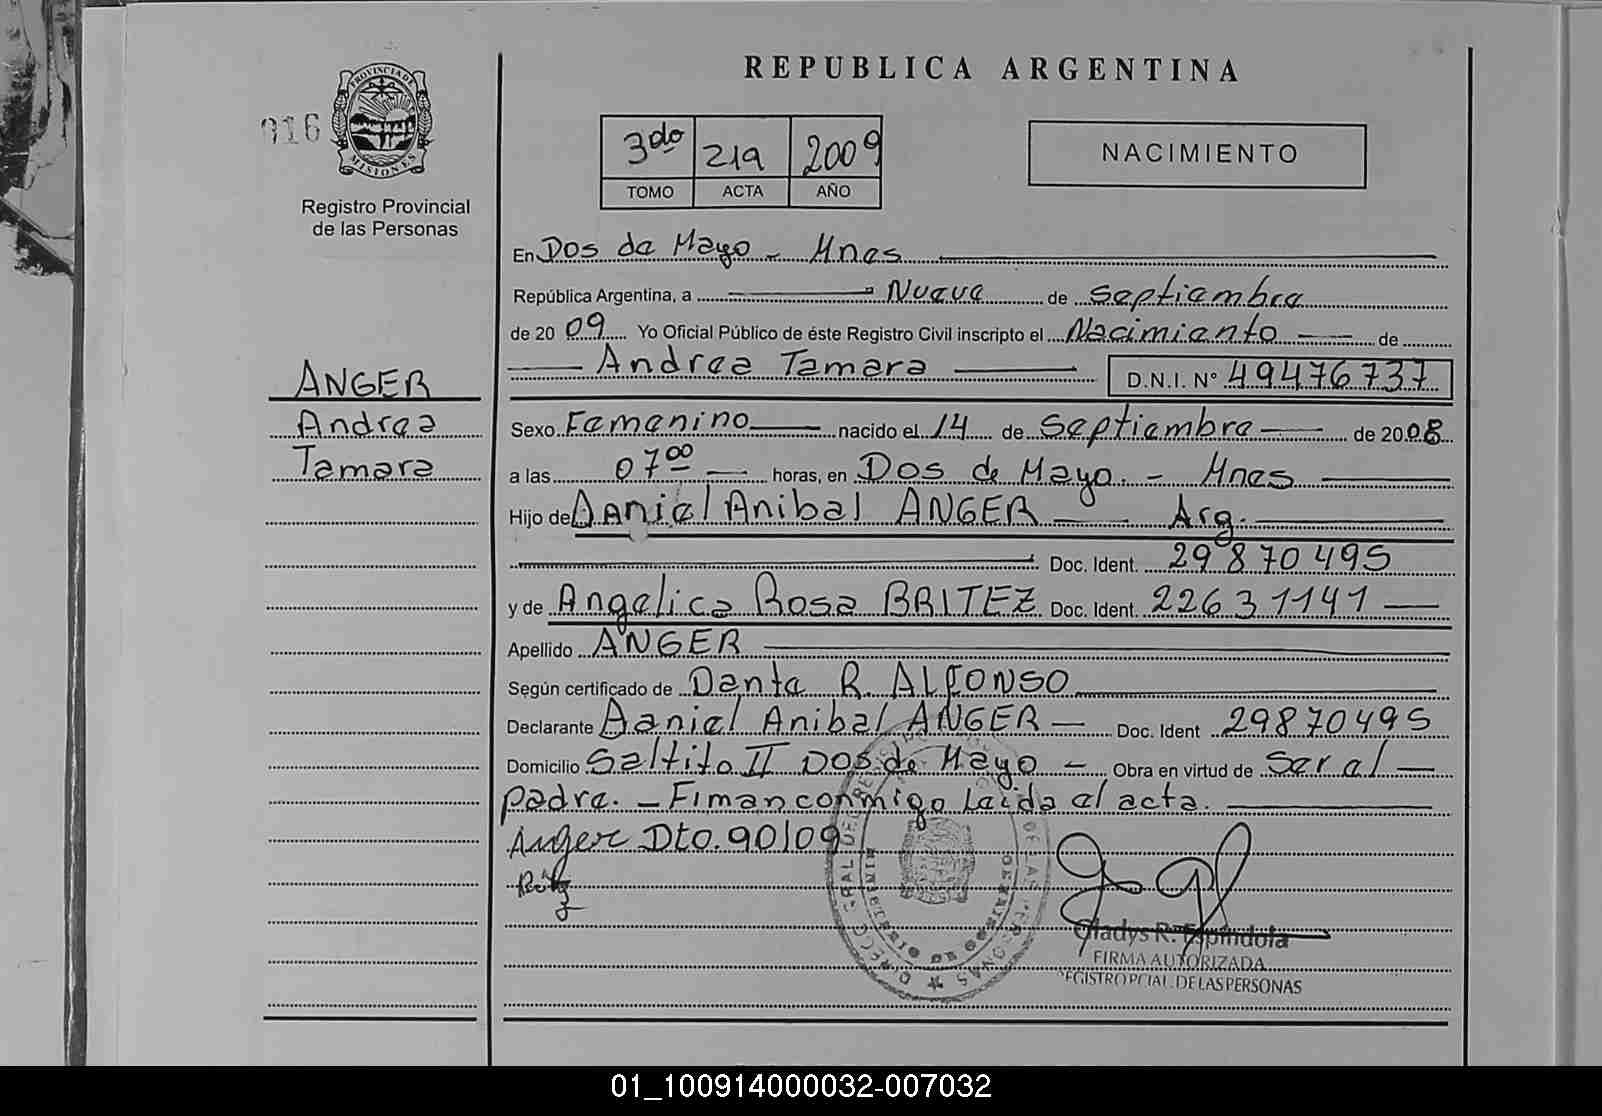 REPUBLICA ARGENTINA
916
PROVINCIA DE
MISIONES
Registro Provincial
de las Personas
3do 219 2009
TOMO ACTA AÑO
NACIMIENTO
ANGER
Andrea
Tamara
En Dos de Mayo - Mnes
República Argentina, a Nueve de Septiembre
de 20 09 Yo Oficial Público de éste Registro Civil inscripto el Nacimiento de
Andrea Tamara D.N.I. N° 49476737
Sexo Femenino nacido el 14 de Septiembre de 2008
a las 07 00 horas, en Dos de Mayo. - Mnes
Hijo de Daniel Anibal ANGER Arg.
Doc. Ident. 29870495
y de Angelica Rosa BRITEZ Doc. Ident. 22631141
Apellido ANGER
Según certificado de Dante R. ALFONSO
Declarante Daniel Anibal ANGER Doc. Ident 29870495
Domicilio Saltito II Dos de Mayo - Obra en virtud de Ser el
padre. - Fiman conmigo Leida el acta.
Anger Dto. 90/09
Gladys R. Espíndola
FIRMA AUTORIZADA
REGISTRO PCIAL. DE LAS PERSONAS
01_100914000032-007032